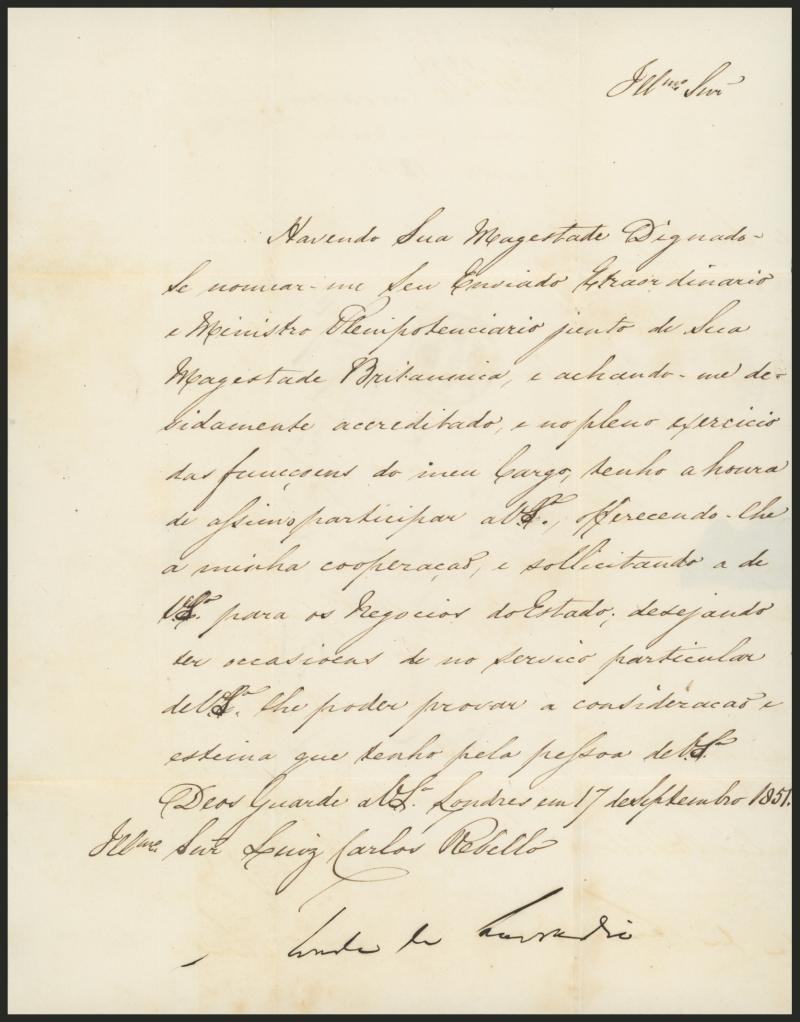 Illmo. Snr
Havendo Sua Magestade Dignado-
Se nomear-me Seu Enviado Extraordinario
e Ministro Plenipotenciario junto de Sua
Magestade Britannica, e achando-me de-
vidamente accreditado, e no pleno exercicio
das funcçoens do meu Cargo, tenho a honra
de assim o participar a V.Sa., offerecendo-lhe
a minha cooperação, e sollicitando a de
V.Sa. para os Negocios do Estado; desejando
ter occasioens de no serviço particular
de V.Sa. lhe poder provar a consideração e
estima que tenho pela pessoa de V.Sa.
Deos Guarde a V.Sa. Londres em 17 de Septembro 1851.
Illmo. Snr. Luiz Carlos Rebello
Conde de Lavradio